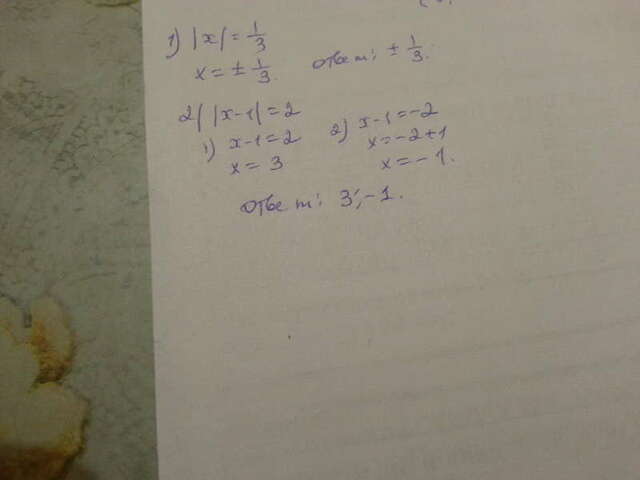 1) |x| = 1/3
x = ± 1/3. ответ: ± 1/3.
2) |x-1| = 2
1) x-1 = 2 2) x-1 = -2
x = 3 x = -2+1
x = -1.
ответ: 3; -1.